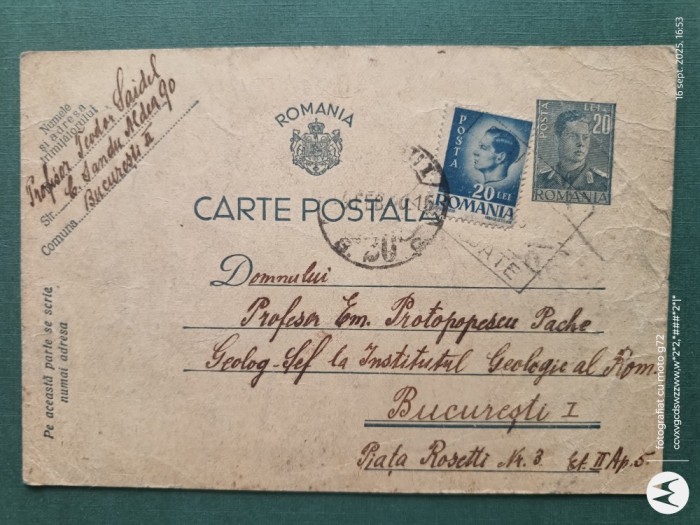 Numele
și adresa
trimițătorului
Profesor Teodor Saidel
Str. C. Sandu Aldea 90
București II
Comuna
Pe această parte se scrie
numai adresa
ROMANIA
CARTE POSTALA
POSTA
20 LEI
ROMANIA
POSTA LEI
20
ROMANIA
FEB
Domnului
Profesor Em. Protopopescu Pache
Geolog-Șef la Institutul Geologic al Rom.
București I
Piața Rosetti Nr. 3 Et. II Ap. 5.
16 sept. 2025, 16:53
fotografiat cu moto g72
ccvxvgcdswzzww,w*2*2,*###*2*!*